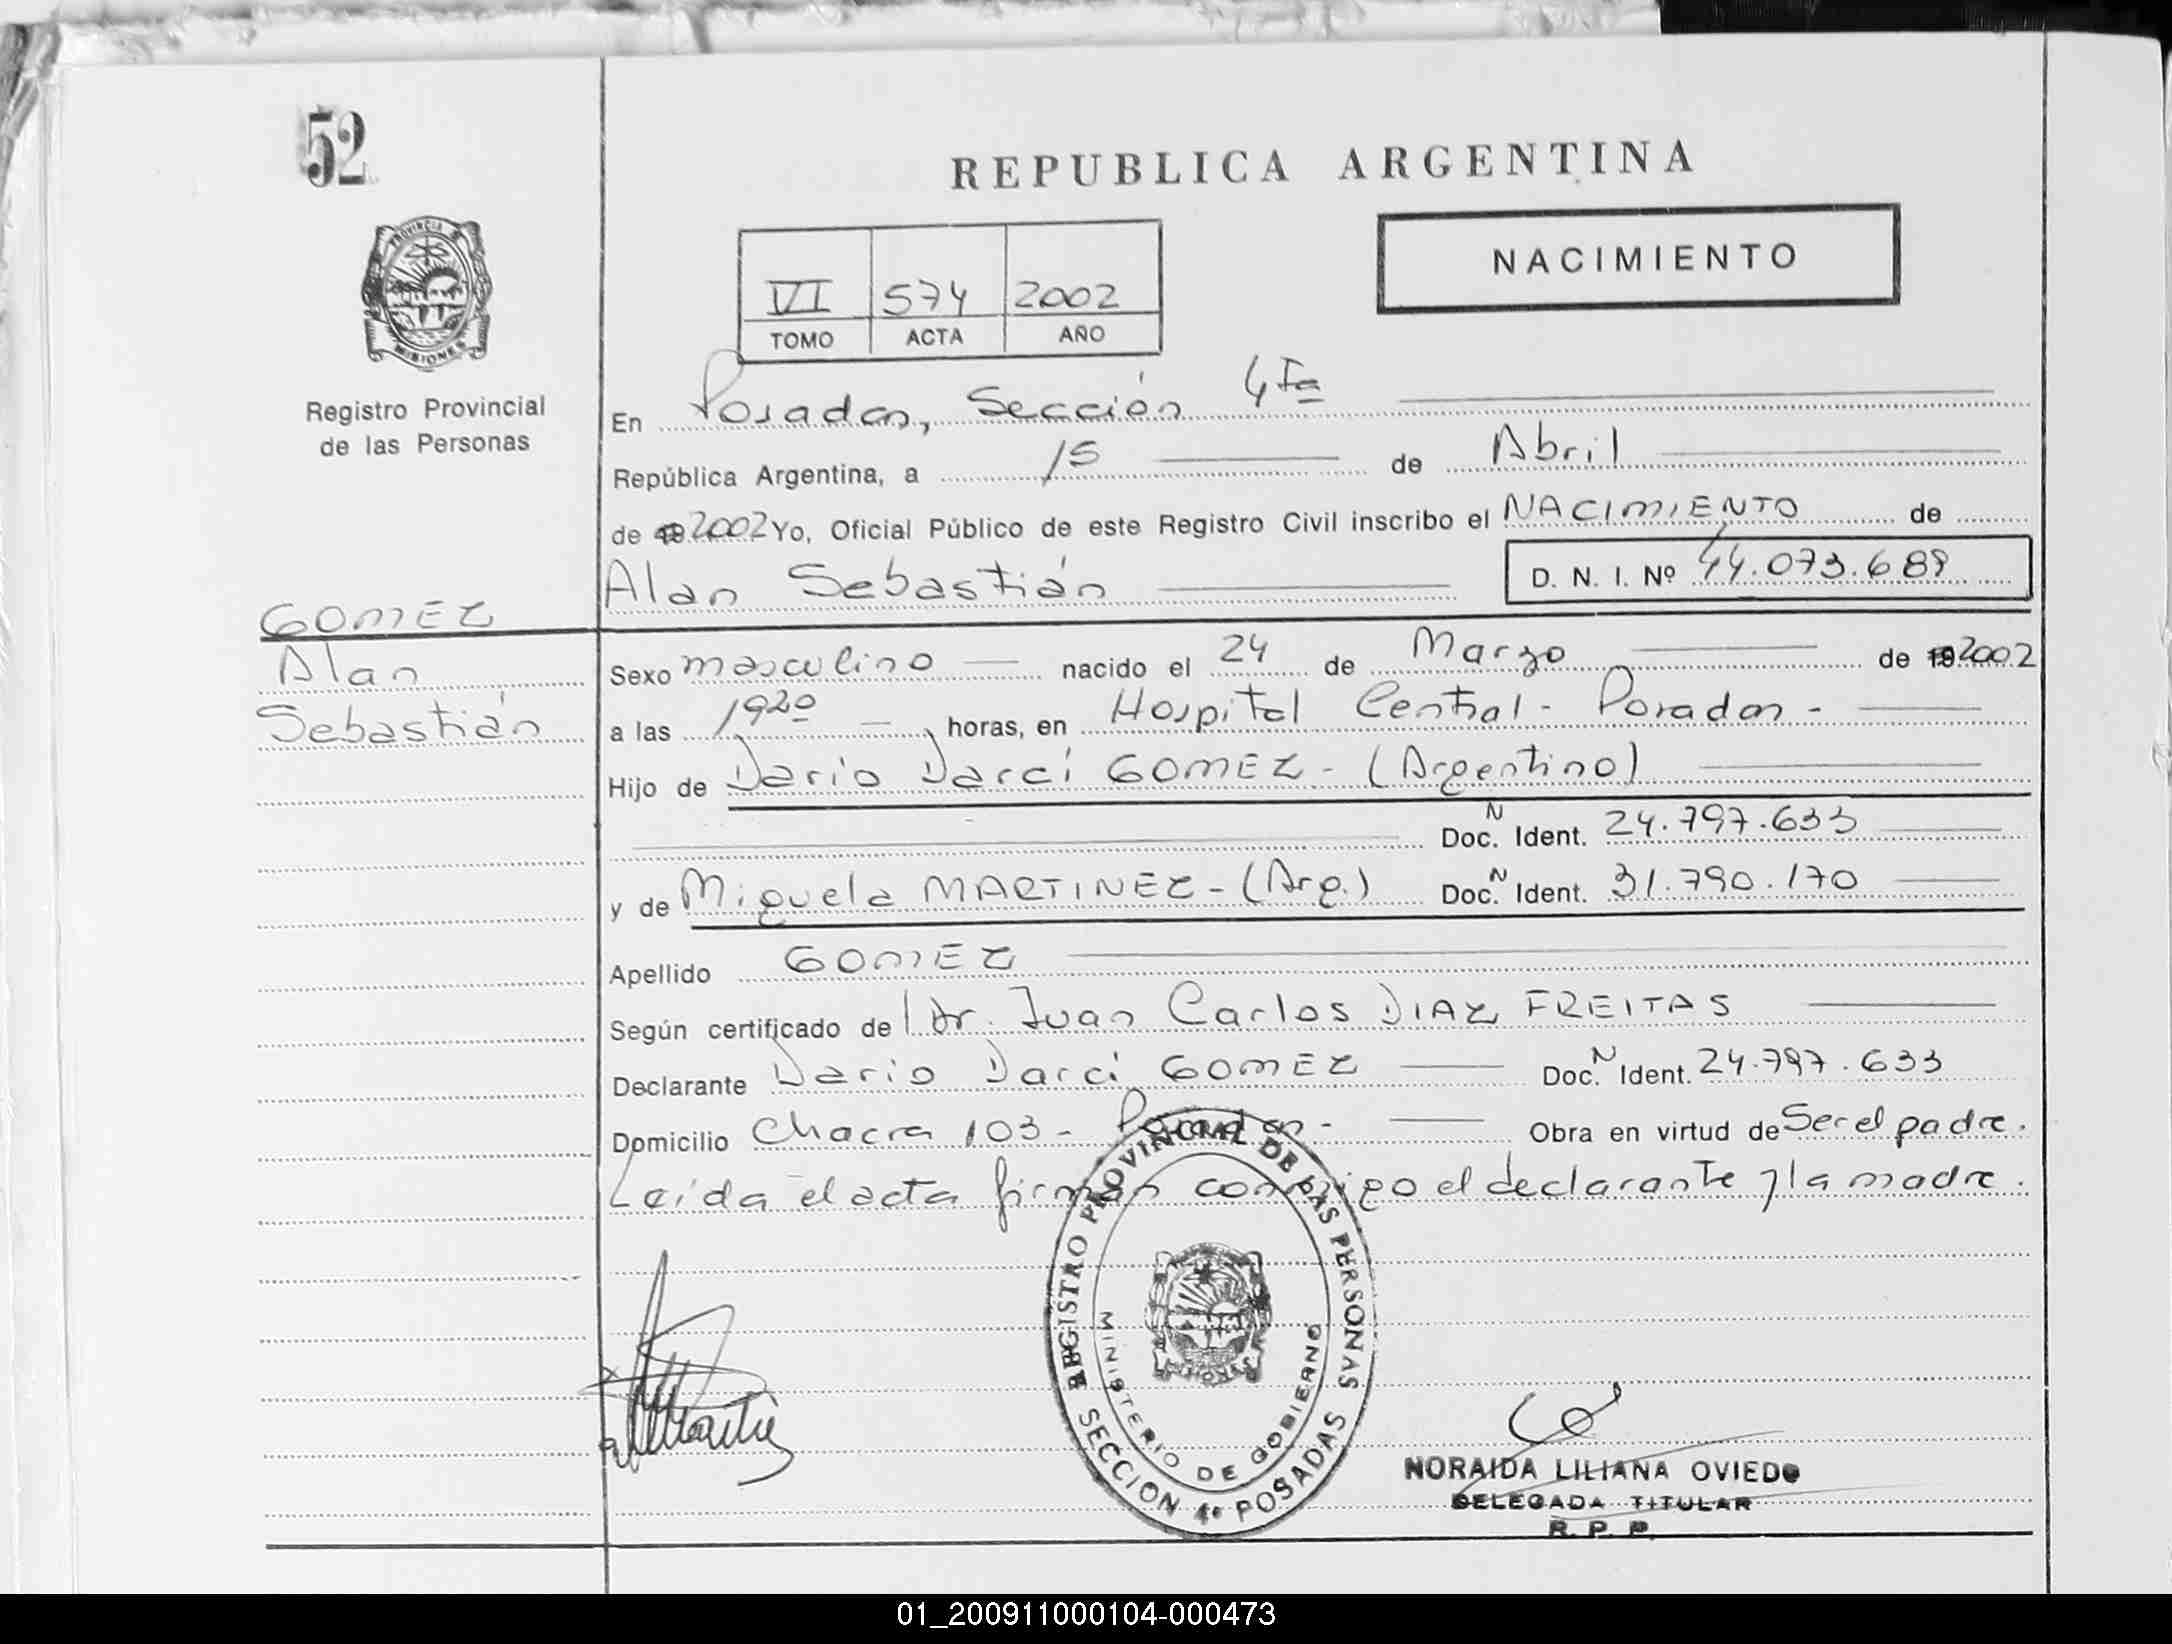 52
REPUBLICA ARGENTINA
NACIMIENTO
VI 574 2002
TOMO ACTA AÑO
PROVINCIA DE
MISIONES
Registro Provincial
de las Personas
En Posadas, Sección 4ta
República Argentina, a 15 de Abril
de 19 2002 Yo, Oficial Público de este Registro Civil inscribo el NACIMIENTO de
Alan Sebastián D. N. I. Nº 44.073.689
GOMEZ
Alan
Sebastián
Sexo masculino nacido el 24 de Marzo de 19 2002
a las 1920 horas, en Hospital Central - Posadas -
Hijo de Dario Darci GOMEZ - (Argentino)
Doc. N Ident. 24.797.633
y de Miguela MARTINEZ - (Arg.) Doc. N Ident. 31.790.170
Apellido GOMEZ
Según certificado de l Dr. Juan Carlos DIAZ FREITAS
Declarante Dario Darci GOMEZ Doc. N Ident. 24.797.633
Domicilio Chacra 103 - Posadas - Obra en virtud de Ser el padre.
Leída el acta firman conmigo el declarante y la madre.
REGISTRO PROVINCIAL DE LAS PERSONAS
MINISTERIO DE GOBIERNO
SECCION 4ª POSADAS
NORAIDA LILIANA OVIEDO
DELEGADA TITULAR
R. P. P.
01_200911000104-000473